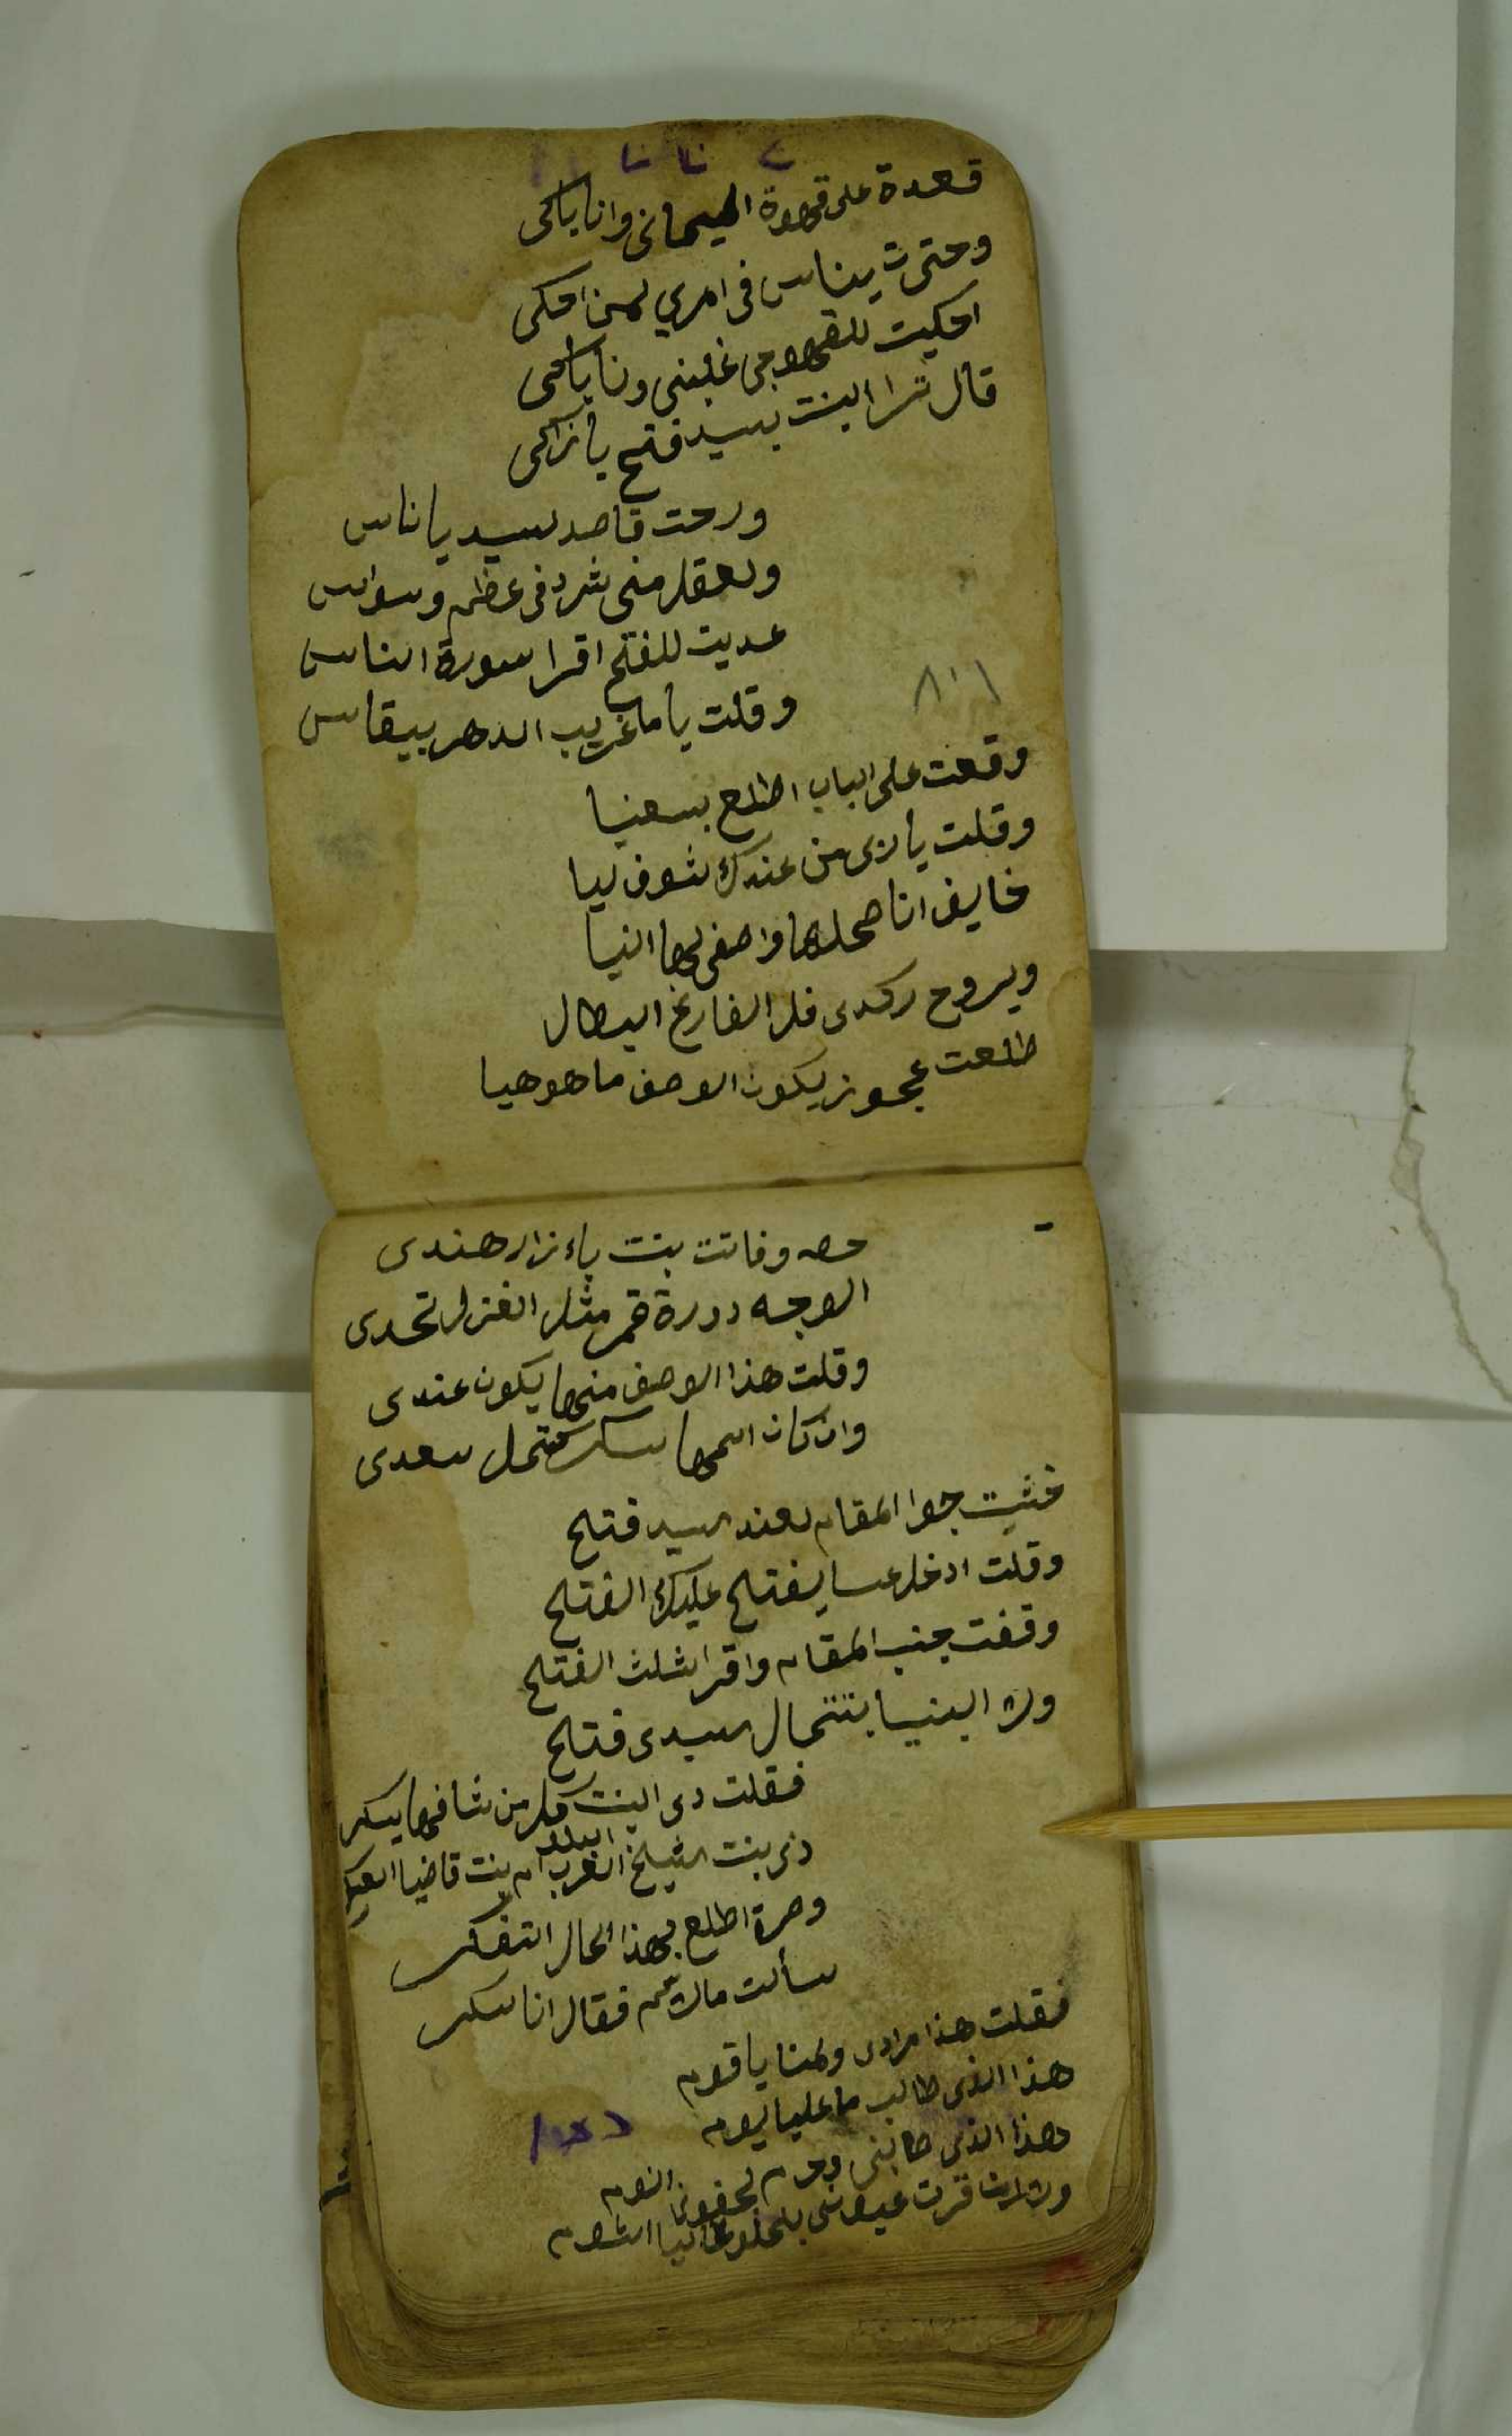 قعدة على قهوة اليماني وانا باكى
وحتى ث يناس فى امري لمن احكى
احكيت للقهوجى غلبنى ونا باكى
قال ترا البنت بسيد فتح يا زاكى
ورحت قاصد لسيد يا ناس
ولعقل منى شرد فى عظم وسواس
عديت للفتح اقرا سورة الناس
وقلت ياما غريب الدهر بيقاس
١٠٨
وقعت على الباب اطلع بسعنيا
وقلت يا ربى من عندك شوف ليا
خايف انا صحلها واصفى لها النيا
ويروح ركدى فلر الفارغ البطال
طلعت عجوز يكون الوصف ما هو هيا
حصه وفاتت بنت بازار هندى
الوجه دورة قمر مثل الغزل تحدى
وقلت هذا الوصف منها يكون عندى
وان كان اسمها سكر كمل سعدى
خشيت جوا المقام لعند السيد فتح
وقلت ادخل عسا يفتح عليك الفتح
وقفت جنب المقام واقرا ثلث الفتح
ولا البنيا بتنحال السيدى فتح
فقلت دى البنت كلر من شافها يسكر
دى بنت الشيخ العرب البلد ام بنت قاضيا
ومرة اطلع بهذا الحال اتفكر
سألت مالاسم فقال انا سكر
فقلت هذا مرادى ولمنا يا قوم
هذا الذى طالب ما عليا يوم
هذا الذى صابنى وحرم لجفونا النوم
قرت عيونى